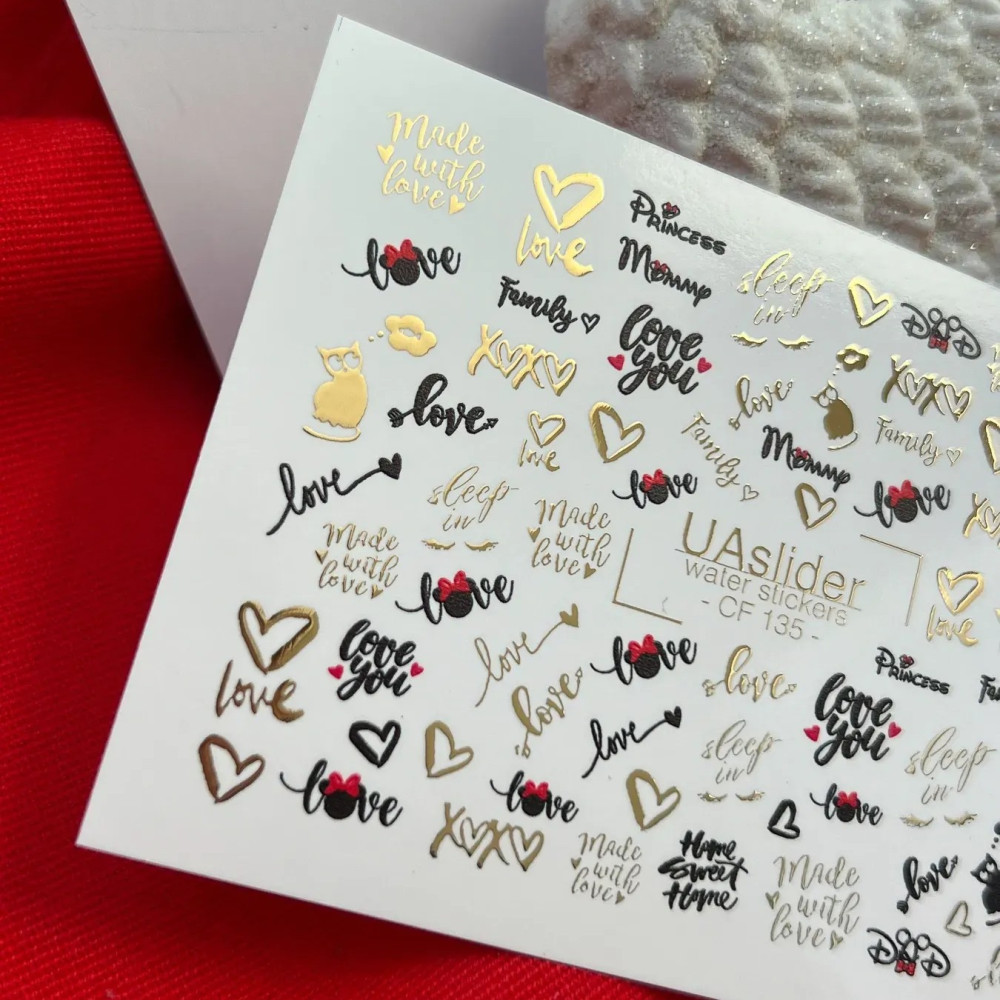 Made
with
love
love
Princess
love
Mommy
sleep
in
Family
love
you
DAD
XOXO
love
love
XOXO
love
Family
Mommy
Family
love
love
sleep
in
love
love
XOXO
Made
with
love
Made
with
love
UAslider
water stickers
- CF 135 -
love
love
love
love
you
love
love
love
Princess
love
love
you
love
sleep
in
sleep
in
love
love
love
XOXO
Made
with
love
Home
Sweet
Home
Made
with
love
love
DAD